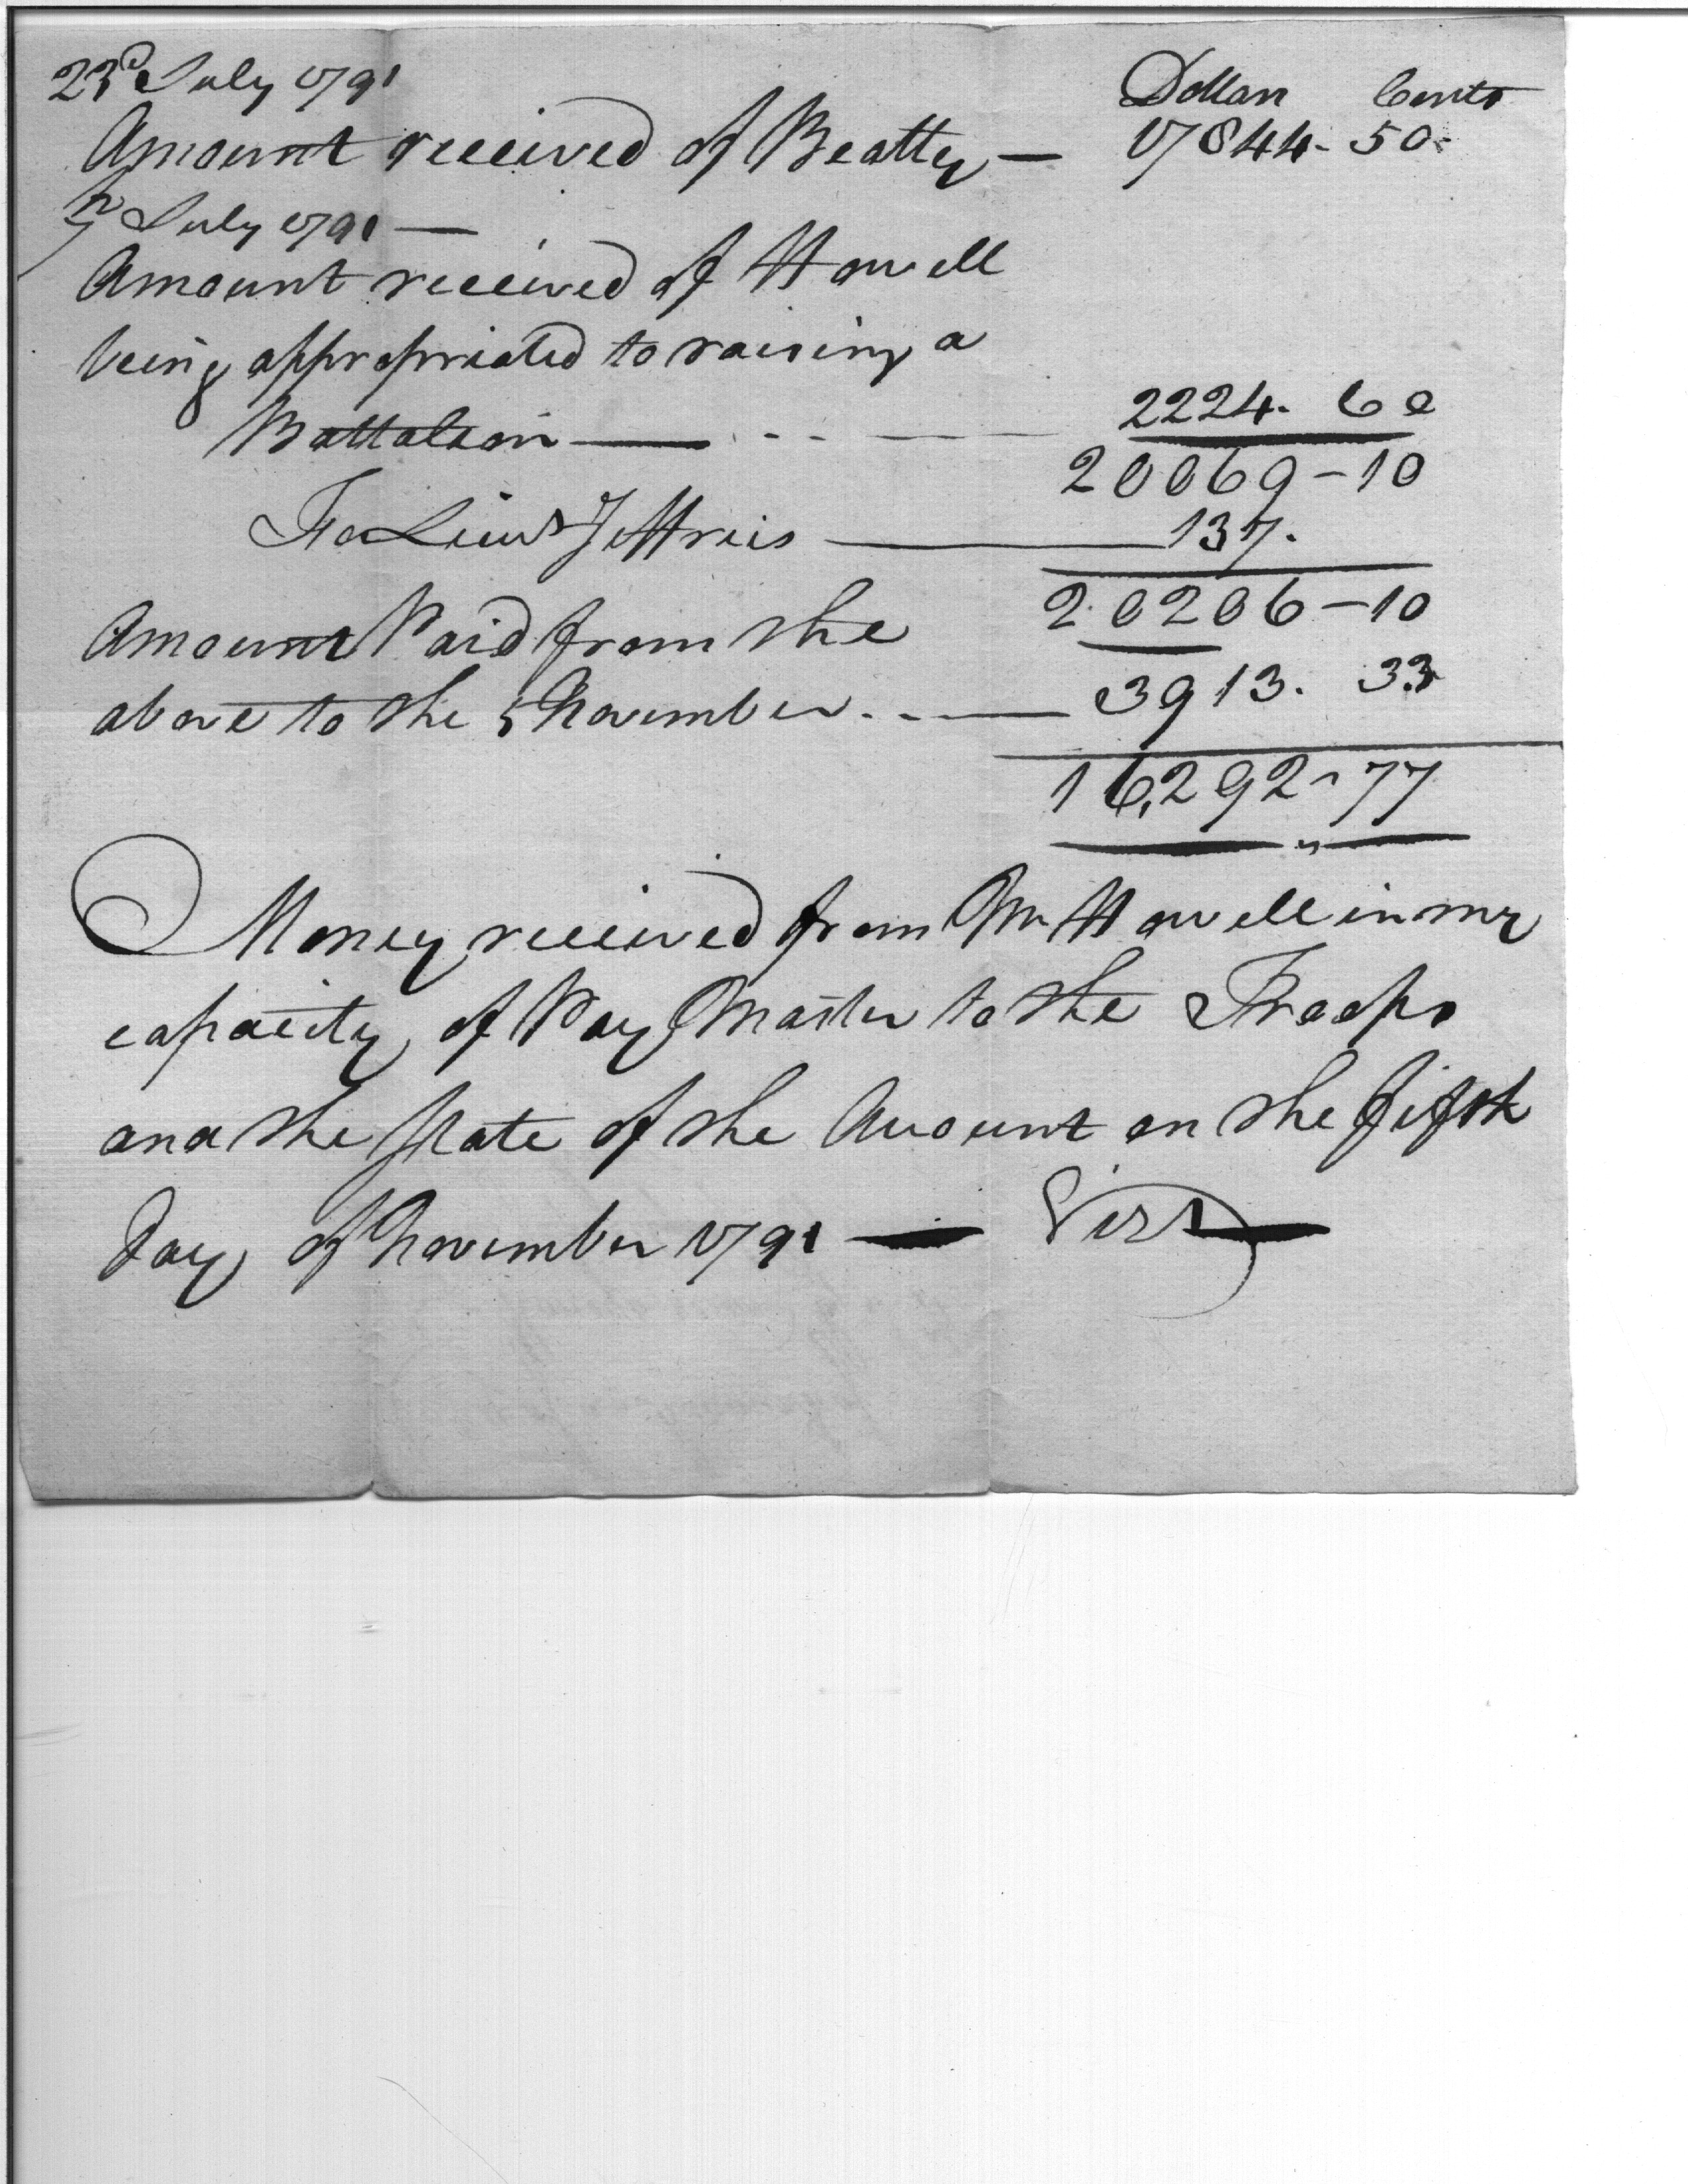 23d July 1791
Dollars Cents
Amount received of Beatty — 17844. 50.
July 1791 —
Amount received of Howell
being appropriated to raising a
Battalion — 2224. 60
20069 - 10
To Lieut Jeffries — 137.
20206 - 10
Amount Paid from the
above to the 5 November . . — 3913. 33
16,292 - 77
Money received from Mr Howell in my
capacity of Pay Master to the Troops
and the State of the Account on the fifth
Day of November 1791 —